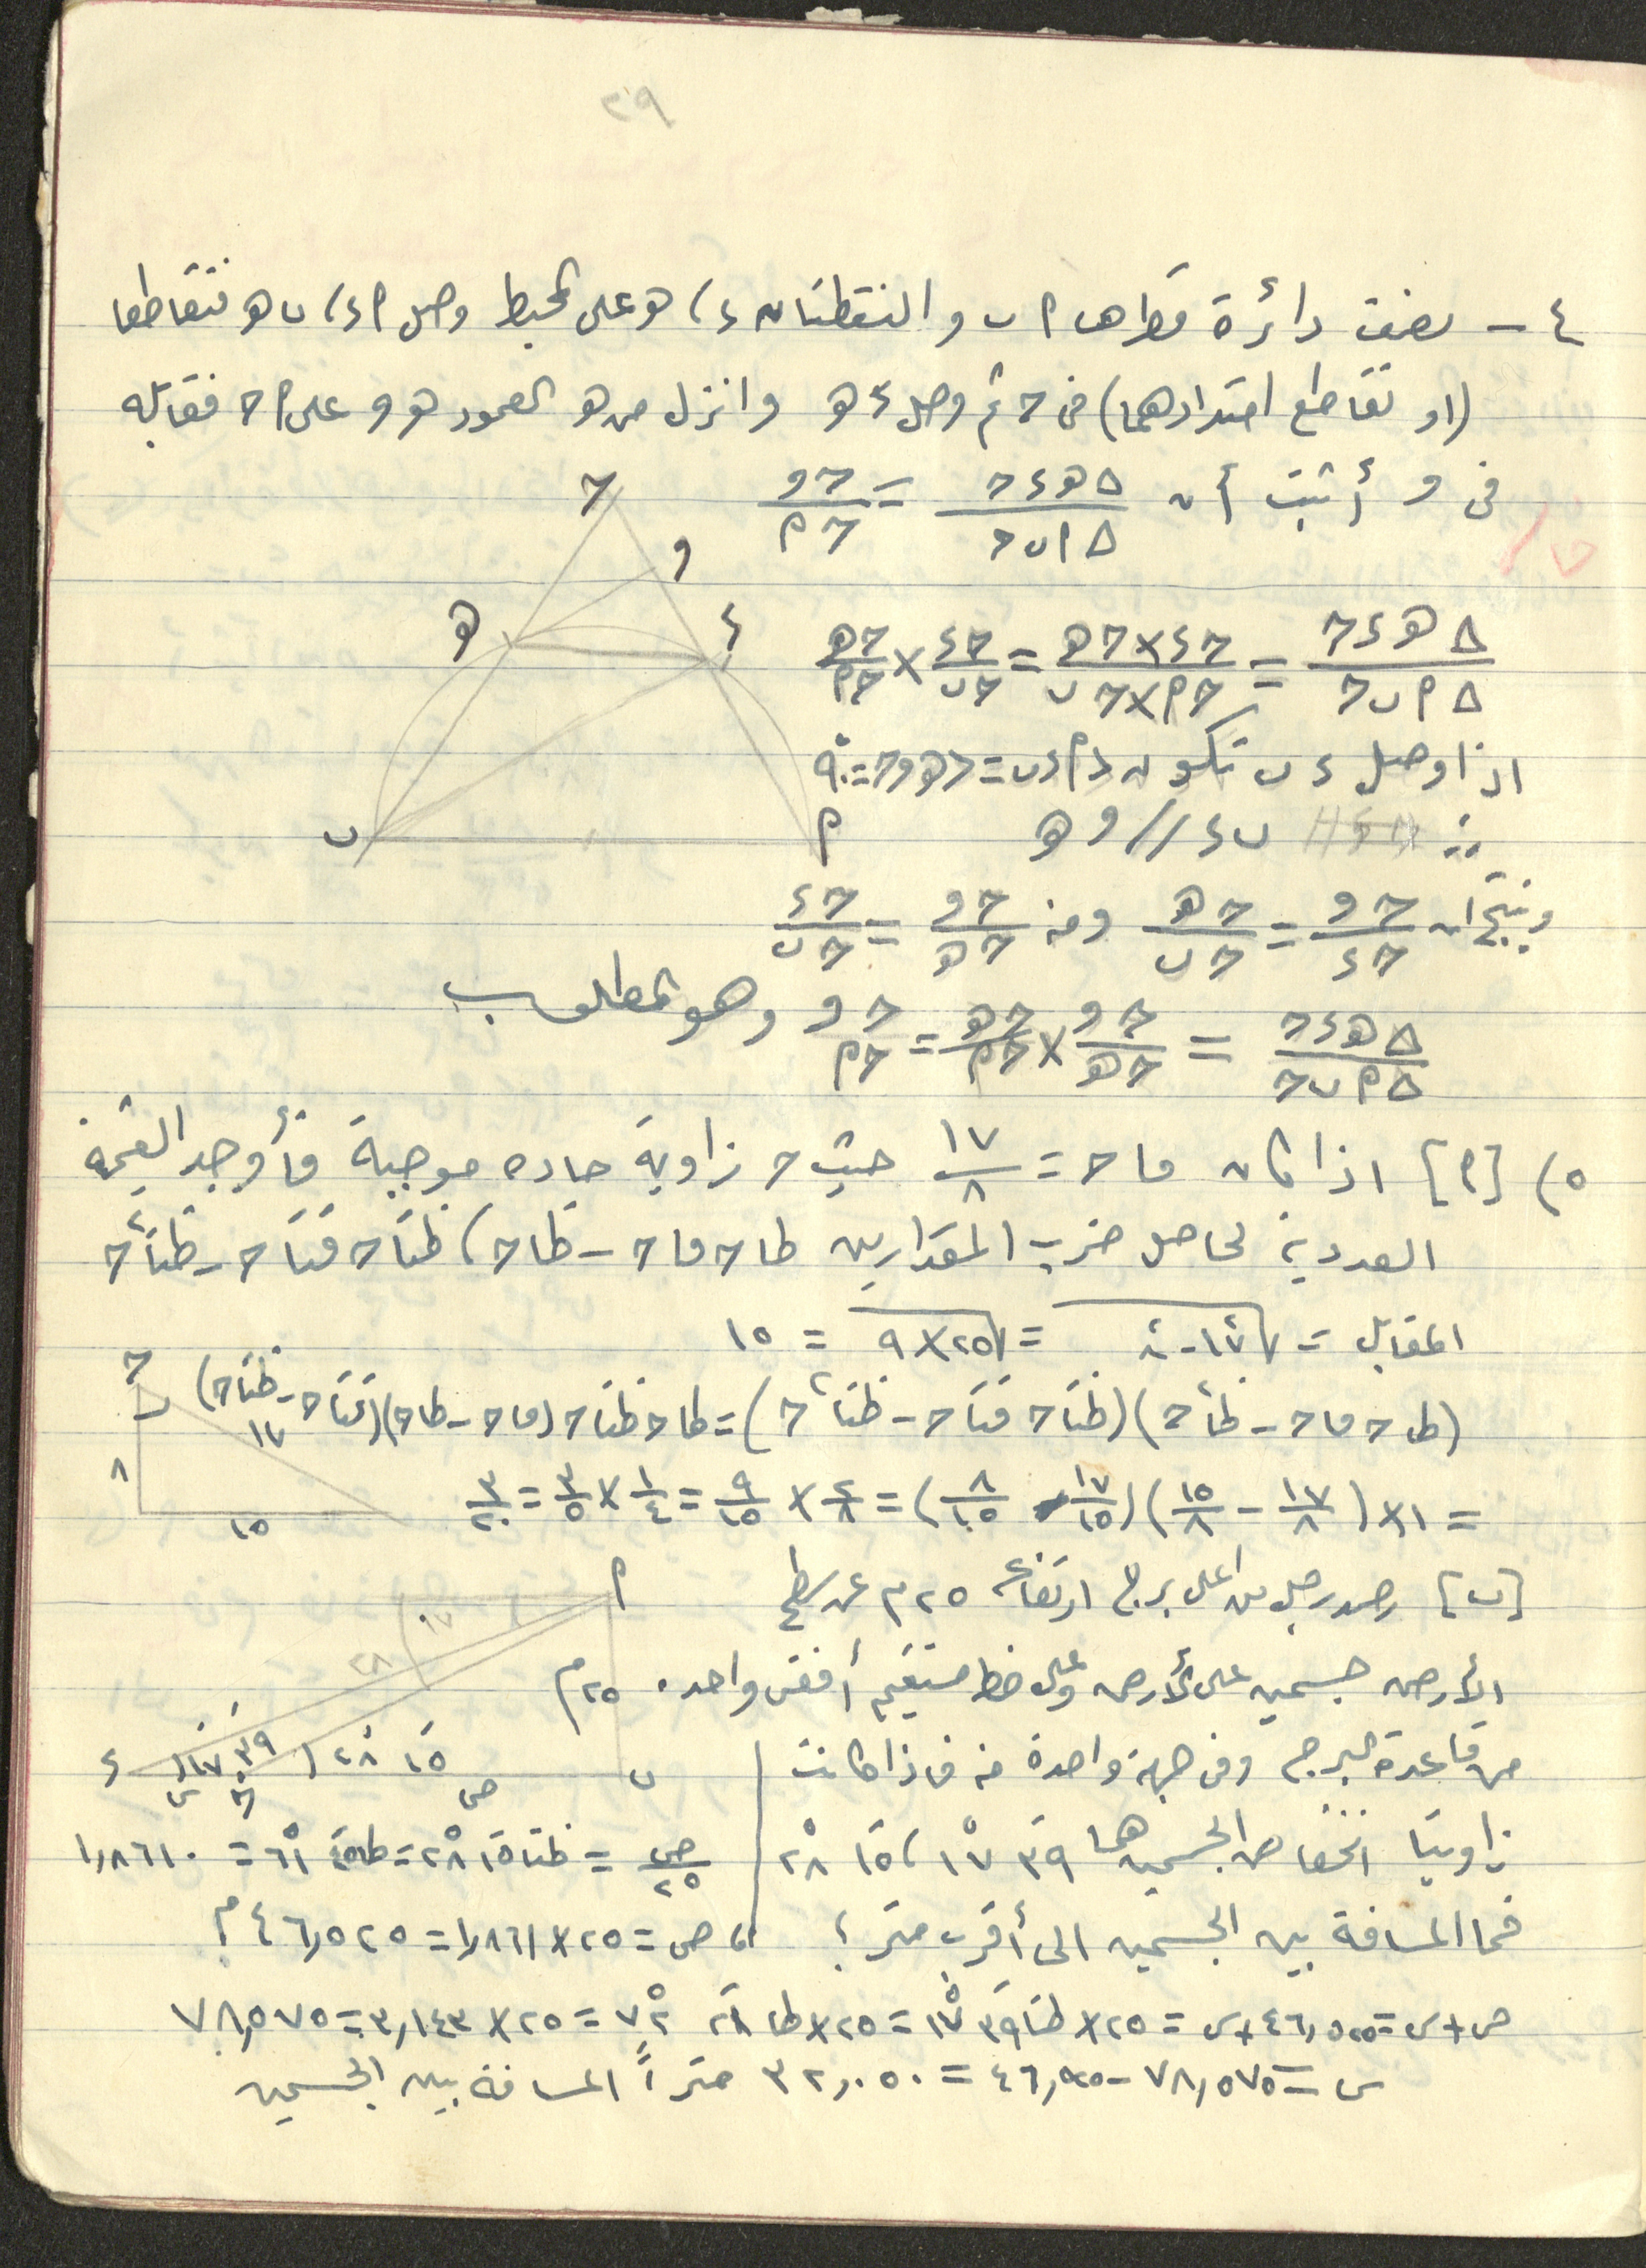 ٣٩
٤ - نصف دائرة قطرها ٢ ب والنقطتان ء، ه على المحيط وصل ٢ ء، ب ه فتقاطعا
(او تقاطع امتدادهما) فى ح ثم وصل ء ه وانزل من ه العمود ه و على ٢ ح فقابله
فى و أثبت أن △ ه ء ح / △ ٢ ب ح = ح و / ح ٢
ح
و
ه
ء
ب
٢
△ ه ء ح / △ ٢ ب ح = ح ء × ح ه / ح ٢ × ح ب = ح ء / ح ب × ح ه / ح ٢
اذا وصل ء ب تكون > ٢ ء ب = > ه و ح = ٩٠°
∴ ب ء // و ه
وينتج ان ح و / ح ء = ح ه / ح ب ومنه ح و / ح ه = ح ء / ح ب
△ ه ء ح / △ ٢ ب ح = ح و / ح ه × ح ه / ح ٢ = ح و / ح ٢ وهو المطلوب
٥) [٢] اذا كان قا ح = ١٧/٨ حيث ح زاوية حاده موجبة فأوجد القيمة
العددية لحاصل ضرب المقدارين طا ح قا ح - طا٢ ح، ظتا ح قتا ح - ظتا٢ ح
المقابل = √١٧٢ - ٨٢ = √٢٥ × ٩ = ١٥
(طا ح قا ح - ظا٢ ح) (ظتا ح قتا ح - ظتا٢ ح) = طا ح ظتا ح (قا ح - طا ح) (قتا ح - ظتا ح)
= ١ × (١٧/٨ - ١٥/٨) (١٧/١٥ - ٨/١٥) = ٢/٨ × ٩/١٥ = ١/٤ × ٣/٥ = ٣/٢٠
ح
١٧
٨
١٥
[ب] رصد رجل من أعلى برج ارتفاعه ٢٥ م عن سطح
الأرض جسمين على الأرض وعلى خط مستقيم أفقى واحد
من قاعدة البرج وفى جهة واحدة منه فاذا كانت
زاويتا انخفاض الجسمين هما ٣٩َ ١٧°، ١٥َ ٢٨°
فما المسافة بين الجسمين الى أقرب متر؟
٢
١٧
٢٨
٢٥ م
ء ١٧° ٣٩َ ٢٨° ١٥َ ب
س ح ص
ص/٢٥ = ظتا ١٥َ ٢٨° = طا ٤٥َ ٦١° = ١,٨٦١٠
، ص = ٢٥ × ١,٨٦١ = ٤٦,٥٢٥ م
ص + س = ٤٦,٥٢٥ + س = ٢٥ × ظتا ٣٩َ ١٧° = ٢٥ × طا ٢١َ ٧٢° = ٢٥ × ٣,١٤٣ = ٧٨,٥٧٥
س = ٧٨,٥٧٥ - ٤٦,٥٢٥ = ٣٢,٠٥٠ متراً المسافة بين الجسمين